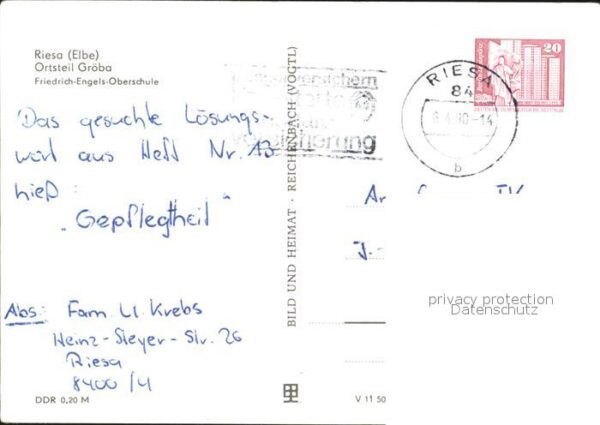 Riesa (Elbe)
Ortsteil Gröba
Friedrich-Engels-Oberschule
Das gesuchte Lösungs-
wort aus Heft Nr. 13
hieß:
"Gepflegtheit"
Abs: Fam. U. Krebs
Heinz-Steyer-Str. 26
Riesa
8400/4
DDR 0,20 M
BILD UND HEIMAT · REICHENBACH (VOGTL)
V 11 50
20
RIESA
84
b
An
privacy protection
Datenschutz